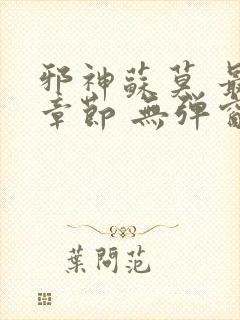 邪神蘇莫 最
章節 無彈窗
葉問范